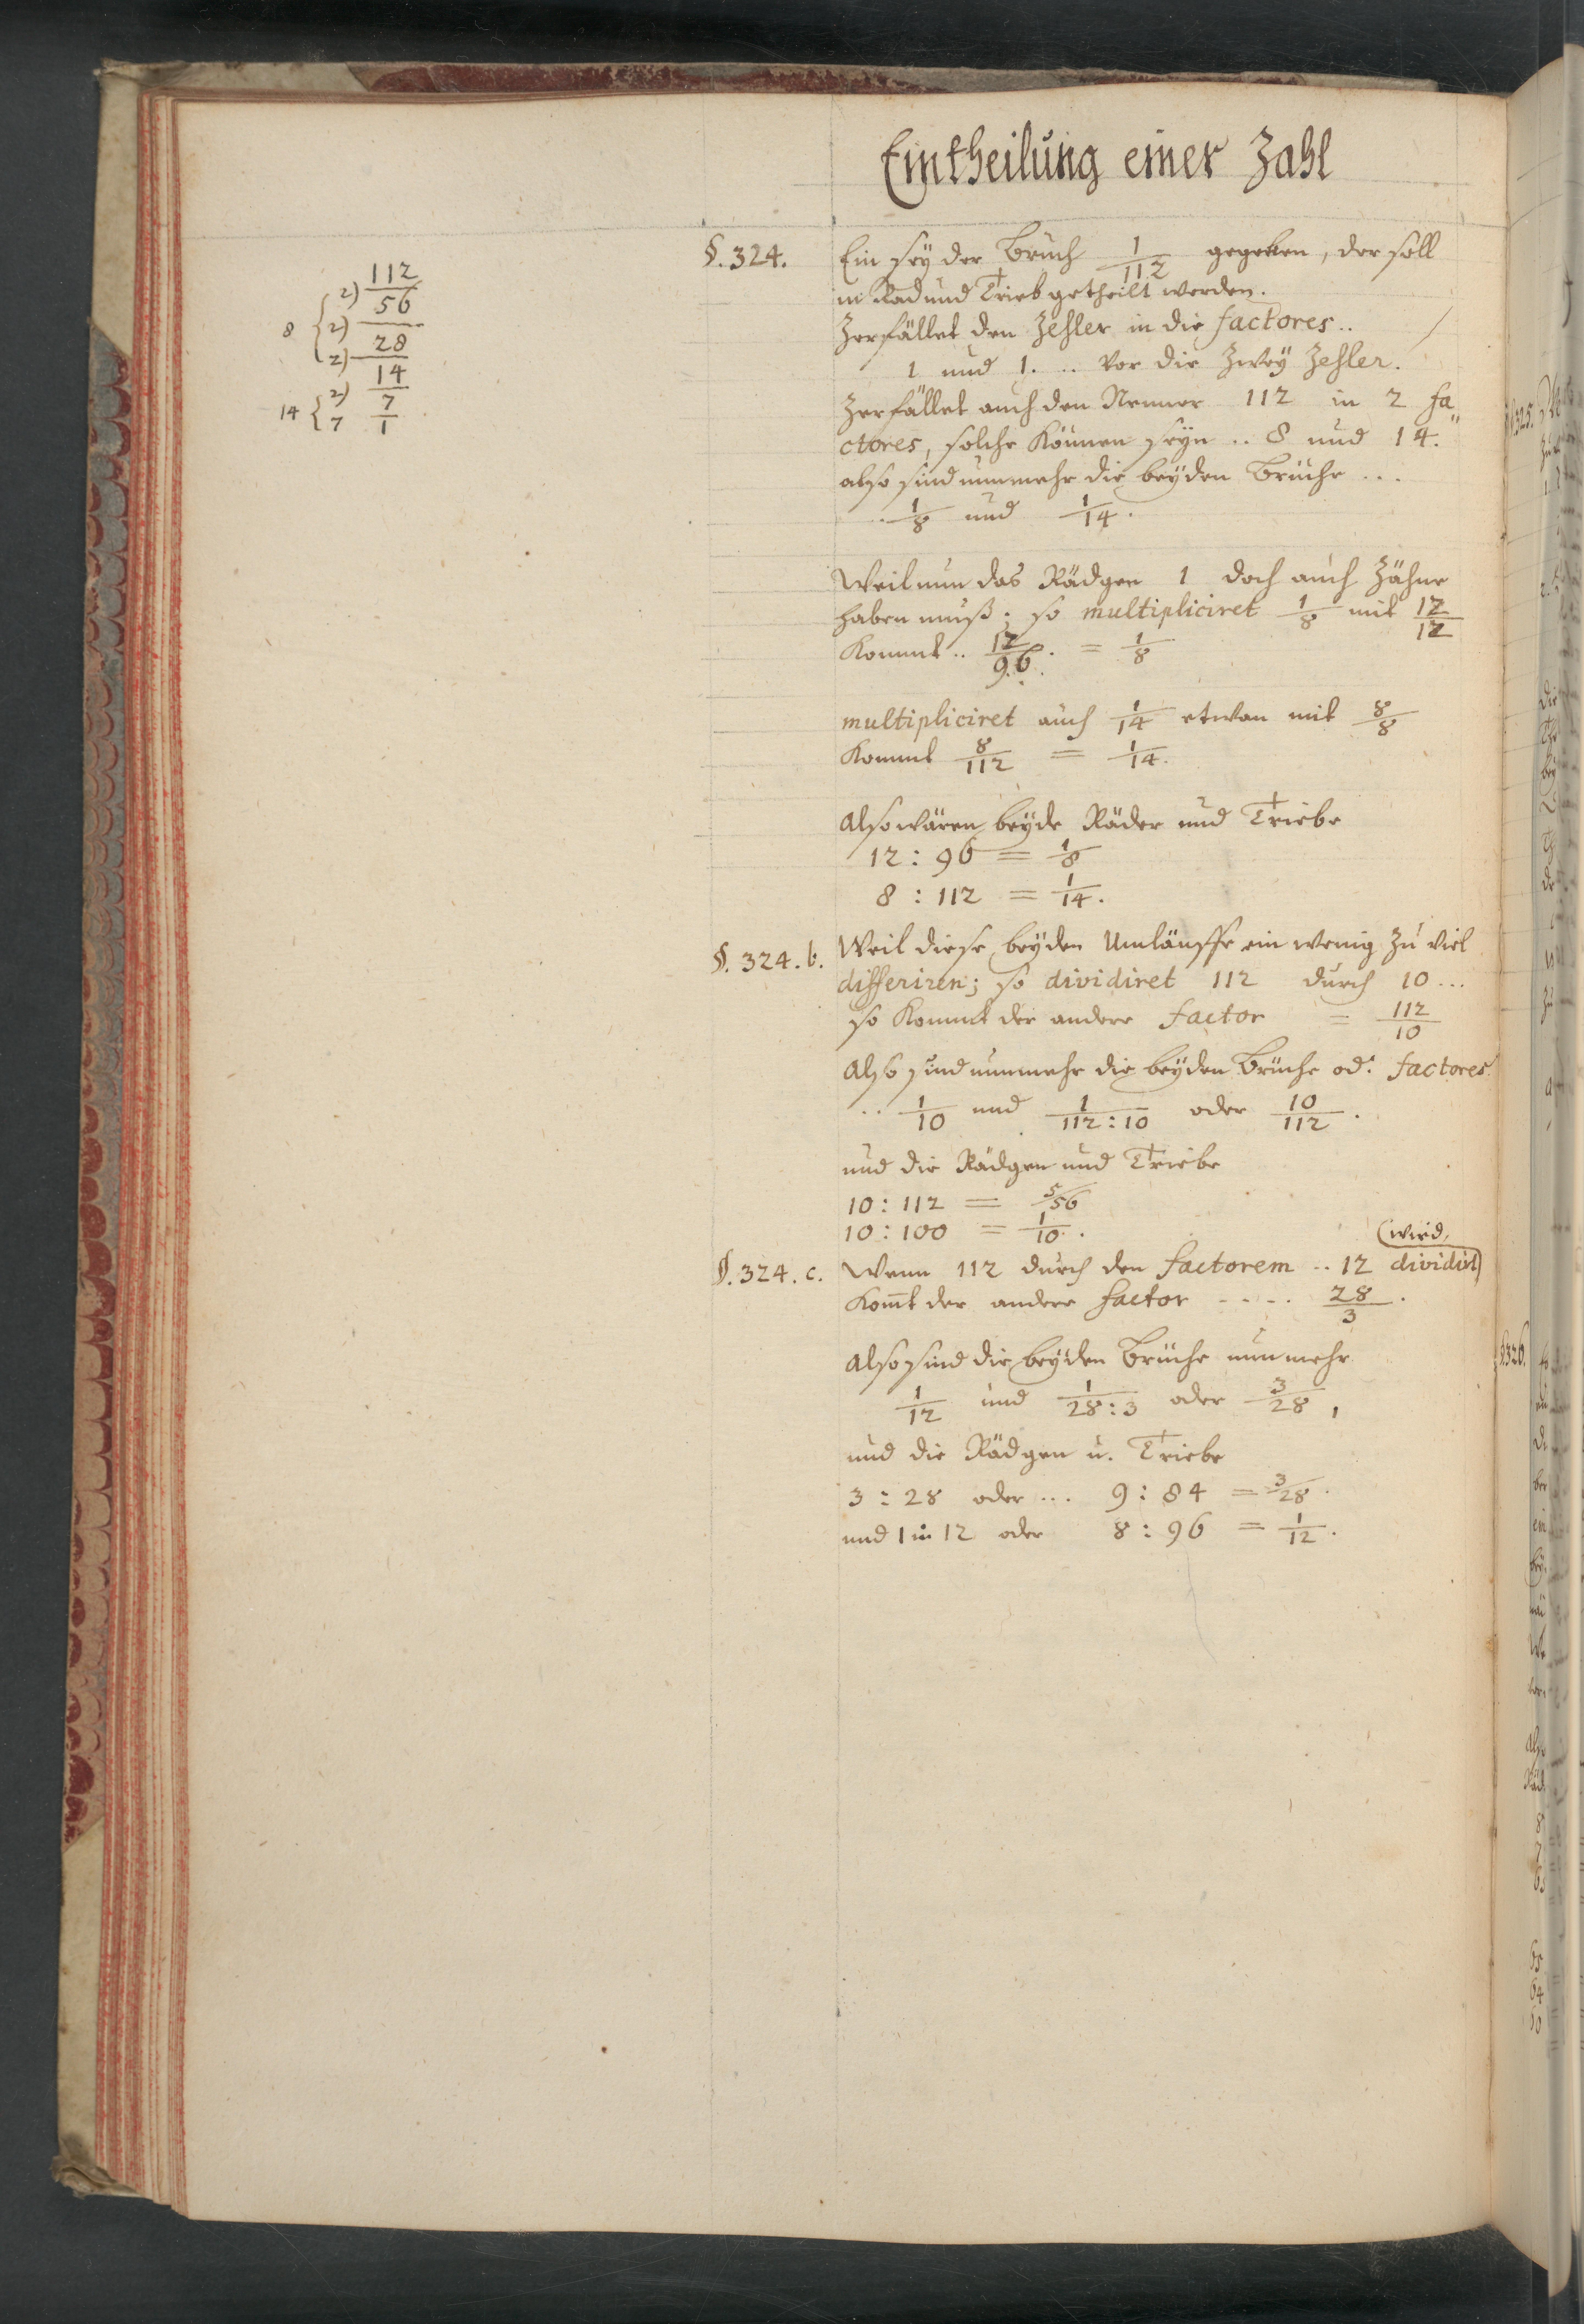 Eintheilung einer Zahl
§.324. Ein sey der Bruch 1/112 gegeben, der soll
in Rad und Trieb getheilt werden.
Zerfället den Zehler in die factores..
1 und 1. .. vor die zwey Zehler.
Zerfället auch den Nenner 112 in 2 fa„
ctores, solche können seyn .. 8 und 14.
also sind nunmehr die beyden Brüche ...
.. 1/8 und 1/14.
112
2) 56
8 { 2) 28
2) 14
14 { 2) 7
7 1
Weil nun das Rädgen 1 doch auch Zähne
haben muß; so multipliciret 1/8 mit 12/12
kommt .. 12/96. = 1/8
multipliciret auch 1/14 etwan mit 8/8
kommt 8/112 = 1/14.
Also wären beyde Räder und Triebe
12 : 96 = 1/8
8 : 112 = 1/14.
§. 324. b. Weil diese beyden Umläuffe ein wenig zu viel
differiren; so dividiret 112 durch 10 ...
so kommt der andere factor = 112/10
Also sind nunmehr die beyden Brüche od: factores.
.. 1/10 und 1/112:10 oder 10/112.
und die Rädgen und Triebe
10 : 112 = 5/56
10 : 100 = 1/10.
§. 324. c. Wenn 112 durch den factorem .. 12 dividirt (wird,
Komt der andere factor - - - - 28/3.
Also sind die beyden Brüche nunmehr
1/12 und 1/28:3 oder 3/28,
und die Rädgen u. Triebe
3 : 28 oder ... 9 : 84 = 3/28.
und 1 in 12 oder 8 : 96 = 1/12.
§.326.